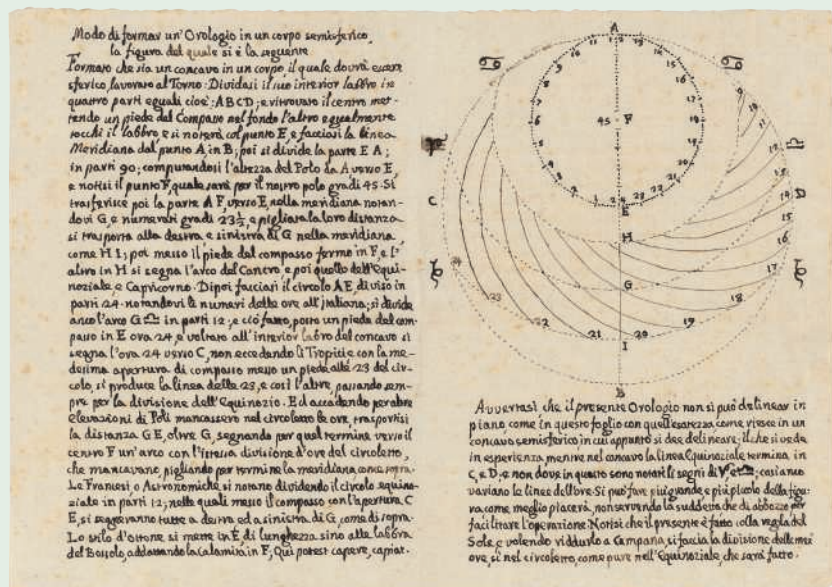 Modo di formar un'Orologio in un corpo semisferico,
la figura del quale si è la seguente
Formato che sia un concavo in un corpo, il quale dovrà essere
sferico, lavorato al Torno: Dividasi il suo interior labbro in
quattro parti eguali cioè: A B C D; e ritrovato il centro met-
tendo un piede del Compasso nel fondo l'altro egualmente
tocchi il labbro e si noterà col punto E, e facciasi la linea
Meridiana dal punto A in B; poi si divide la parte E A;
in parti 90; computandosi l'altezza del Polo da A verso E,
e notisi il punto F, quale sarà per il nostro polo gradi 45. Si
trasferisce poi la parte A F, verso E, nella meridiana notan-
dovi G, e numerati gradi 23½, e pigliata la loro distanza
si trasporta alla destra, e sinistra di G nella meridiana
come H I; poi messo il piede del compasso fermo in F, e l'
altro in H si segna l'arco del Cancro, e poi quello dell'Equi-
noziale, e Capricorno. Dipoi facciasi il circolo A E, diviso in
parti 24. notandovi li numeri delle ore all'italiana; si divide
anco l'arco G ♎ in parti 12; e ciò fatto, posto un piede del com-
passo in E ora 24, e voltato all'interior labro del concavo si
segna l'ora 24 verso C, non eccedendo li Tropici e con la me-
desima apertura di compasso messo un piede alle 23 del cir-
colo, si produce la linea delle 23, e così l'altre, passando sem-
pre per la divisione dell'Equinozio. Ed accadendo per altre
elevazioni di Poli mancassero nel circoletto le ore, trasportisi
la distanza G E, oltre G, segnando per qual termina verso il
centro F un'arco con l'istessa divisione d'ore del circoletto,
che mancavano, pigliando per termine la meridiana come sopra.
Le Francesi, o Astronomiche si notano dividendo il circolo equino-
ziale in parti 12; nelle quali messo il compasso con l'apertura C
E, si segneranno tutte a destra ed a sinistra di G, come di sopra.
Lo stilo d'ottone si mette in E di lunghezza sino alle labbra
del Bossolo, addattando la Calamita in F; Qui potest capere, capiat.
A
11 12 13
10 14
9 15
8 16
7 17
6 45 F 18
5 19
4 20
3 21
2 22
1 24 23
E
♋ ♋
♈ ♎
C D
♑ ♑
9
10
11
12
13
14
15
16
17
18
19
20
21
22
23
24
H
G
I
B
Avvertasi, che il presente Orologio non si può delinear in
piano come in questo foglio con quell'esatezza, come riesce in un
concavo semisferico in cui appunto si dee delineare; il che si vede
in esperienza mentre nel concavo la linea Equinoziale termina in
C, e D, e non dove in questo sono notati li segni di ♈ e ♎; così anco
variano le linee dell'ore. Si può fare più grande, e più picolo della figu-
ra come meglio piacerà, non servendo la suddetta che di abbozzo per
facilitare l'operazione. Notisi che il presente è fatto colla regola del
Sole, e volendo ridurlo a Campana, si faccia la divisione delle mez'
ore, sì nel circoletto, come pure nell'Equinoziale, che sarà fatto.